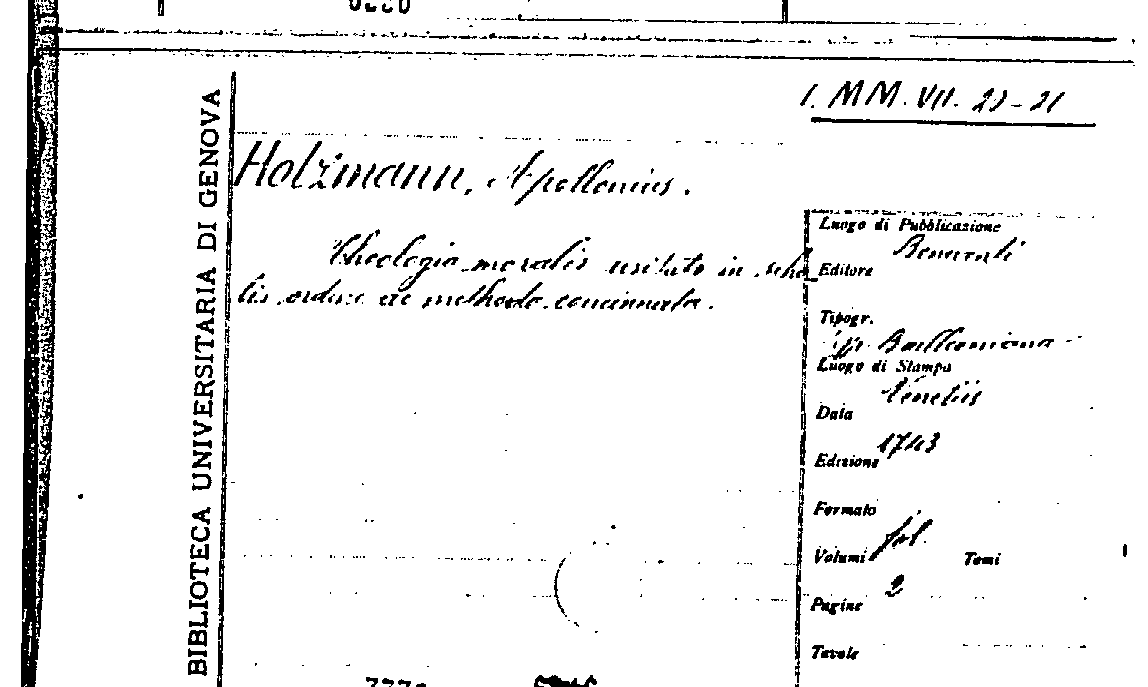 BIBLIOTECA UNIVERSITARIA DI GENOVA
Holzmann, Apollonius.
Theologia moralis usitato in scho
lis ordine ac methodo concinnata.
Luogo di Pubblicazione
Beneventi
Editore
Tipogr.
Balleoniana
Luogo di Stampa
Venetiis
Data
1743
Edizione
Formato
fol.
Volumi Tomi
2
Pagine
Tavole